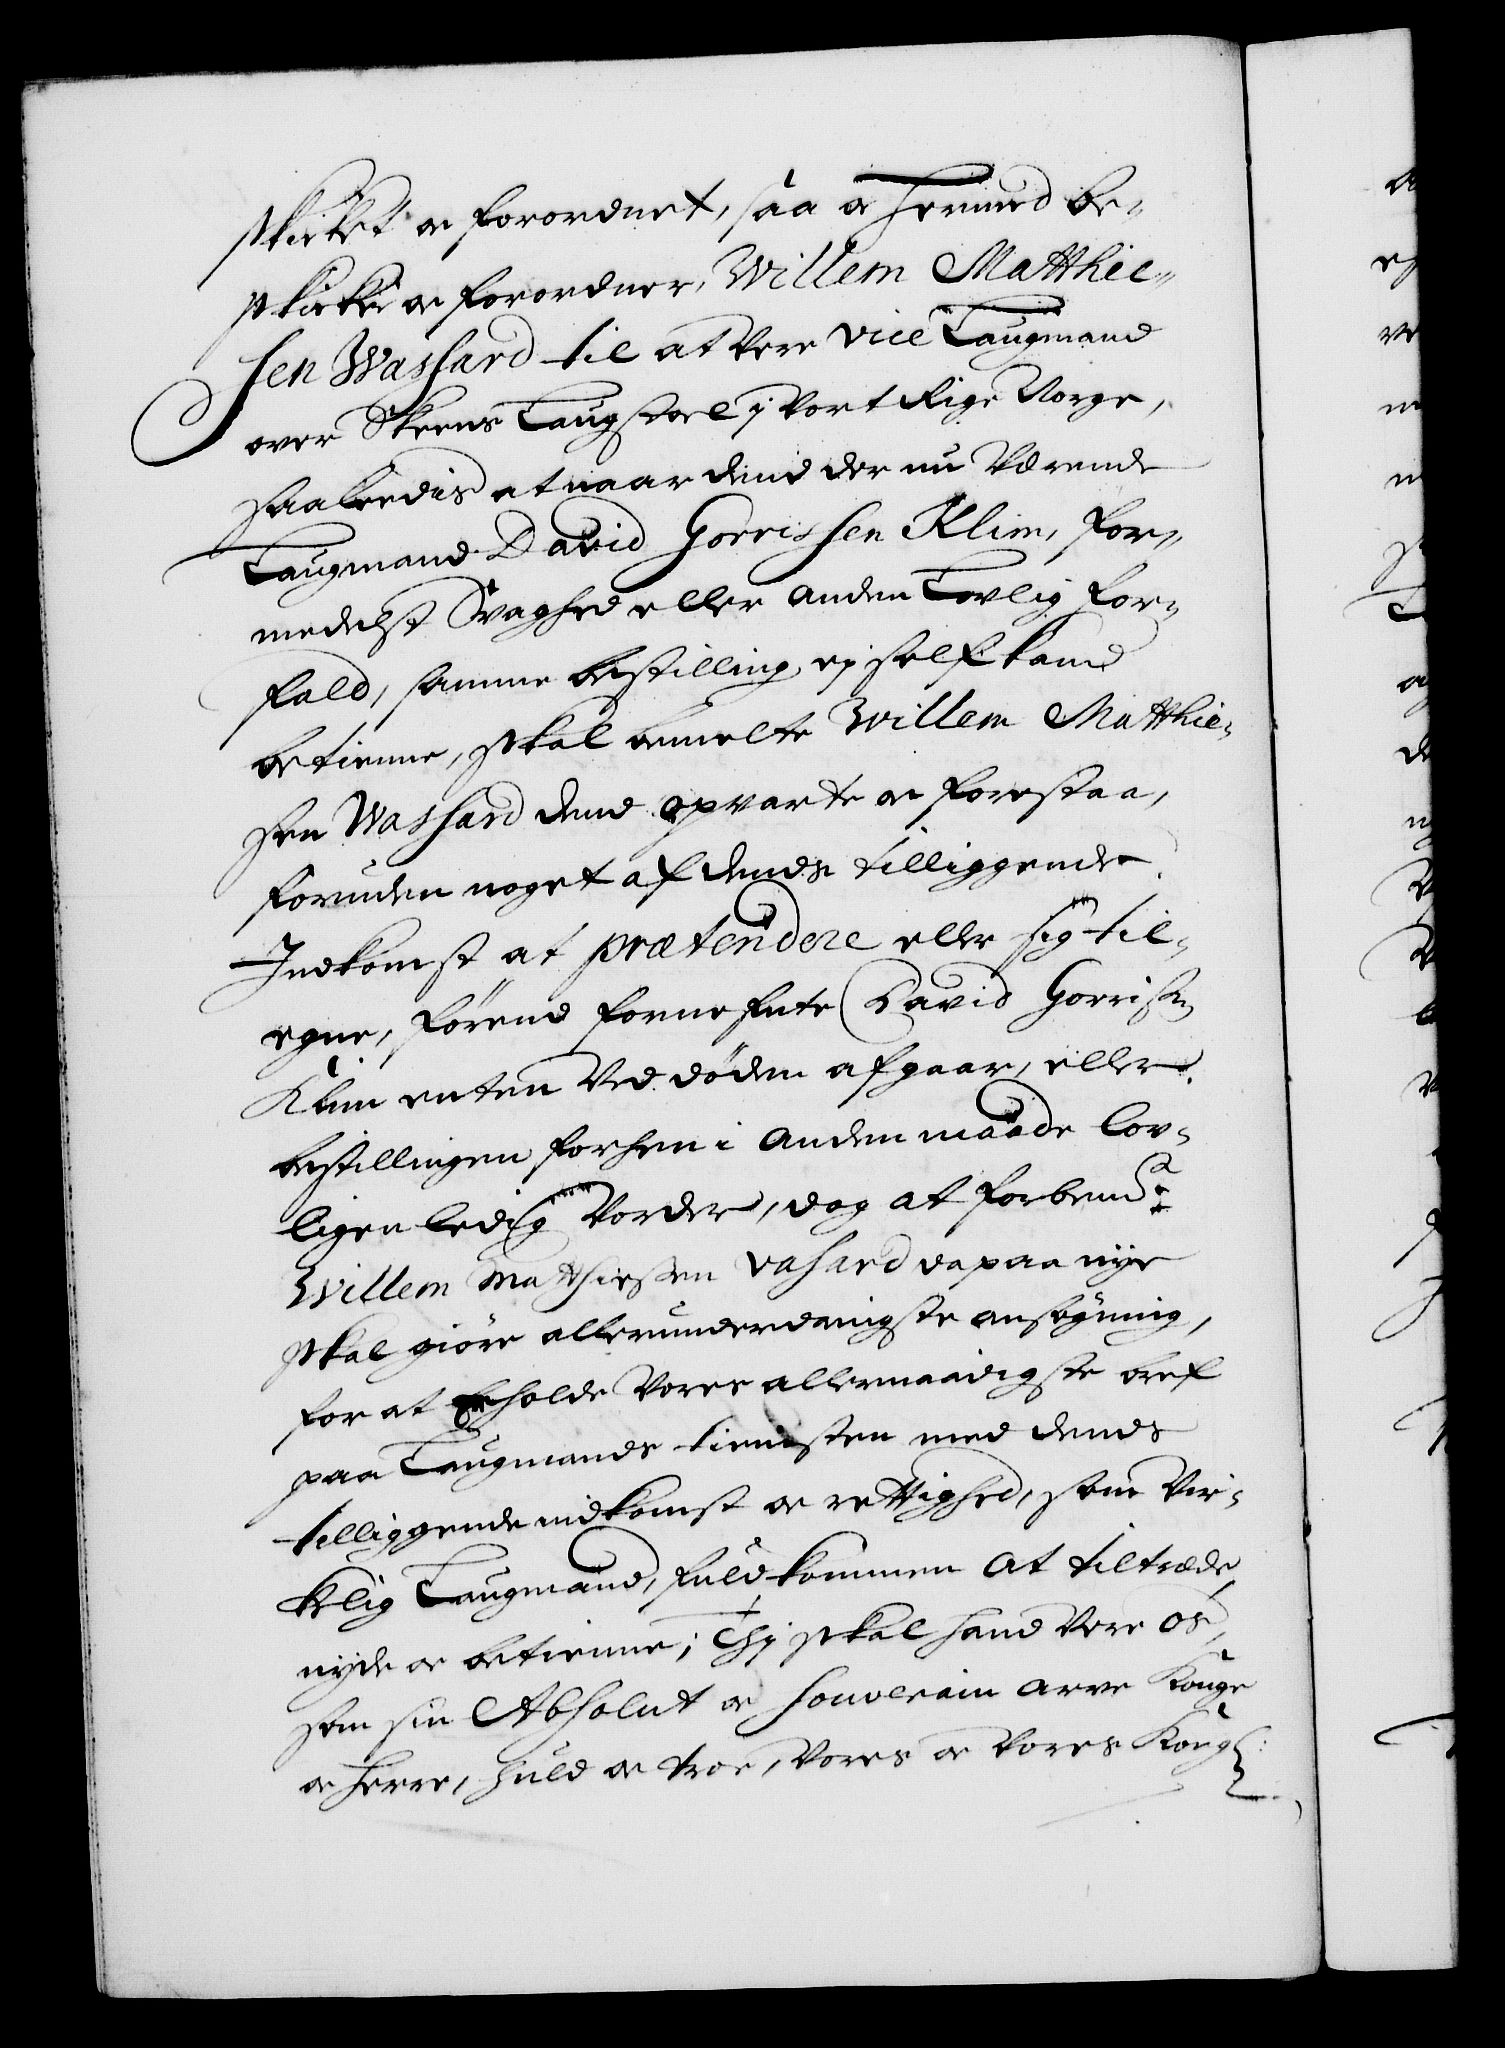 skicket oc forordnet, saa oc hermed be-
skicke oc forordner, Willem Matthie-
sen Wassard til at Vere vice Laugmand
over Skeens Laugstoel j Vort Rige Norge,
saaledis at naar dend der nu Værende
Laugmand David Gorrissen Klim, for-
medelst Svaghed eller anden Lovlig for-
fald, samme bestilling ej self kand
betienne, skal bemelte Willem Matthie-
sen Wassard dend opvarte oc forestaa,
foruden noget af dends tilliggende
Indkomst at prætendere eller sig til-
egne, førend fornefnte David Gorrissen
Klim enten Ved døden afgaar, eller
bestillingen forhen i anden maade lov-
ligen ledig Vorder, dog at forbemte
Willem Matthiessen Vasard da paa nye
skal giøre allerunderdanigste ansøgning,
for at Erholde Vores allernaadigste bref
paa Laugmands tienesten med dends
tilliggende indkomst oc rettighed, som Vir-
kelig Laugmand, fuldkommen at tiltræde,
nyde oc betienne; Thj skal hand Vere os,
som sin Absolut oc souverain arve Konge
oc Herre, huld oc troe, Vores oc Vores Kongl: